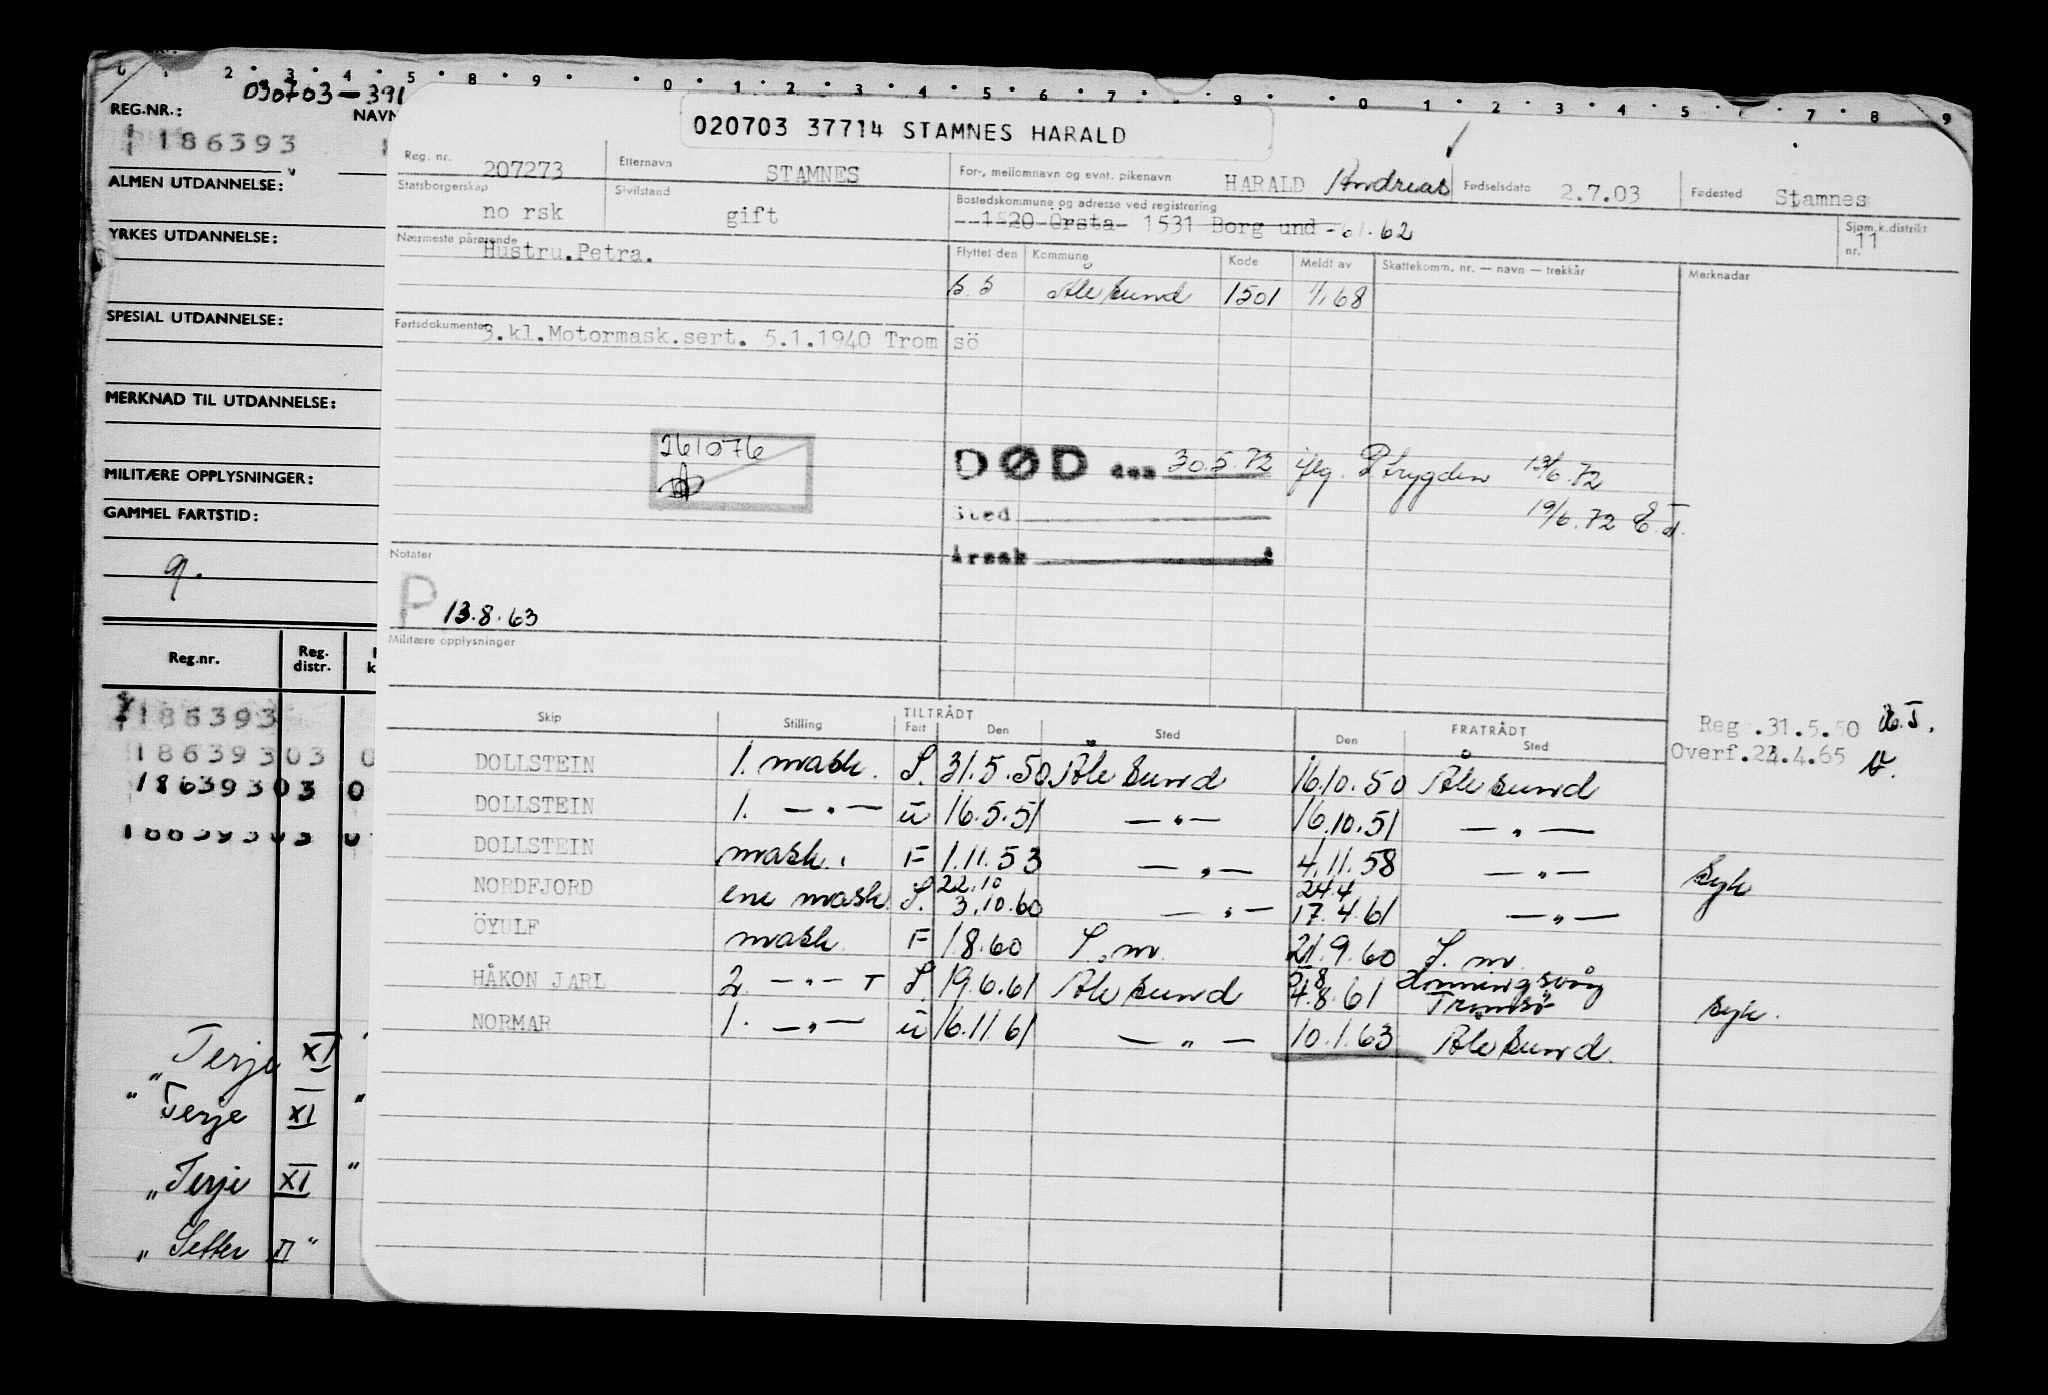 030703-391
REG.NR.: NAVN
186393
ALMEN UTDANNELSE:
YRKES UTDANNELSE:
SPESIAL UTDANNELSE:
MERKNAD TIL UTDANNELSE:
MILITÆRE OPPLYSNINGER:
GAMMEL FARTSTID:
Reg.nr. Reg. distr.
186393
186393 03 0
186393 03 0
„ Terje XI "
" Terje XI "
„ Terje XI "
„ Setter II "
020703 37714 STAMNES HARALD
Reg. nr. 207273 Etternavn STAMNES For-, mellomnavn og evnt. pikenavn HARALD Andreas Fødselsdato 2.7.03 Fødested Stamnes
Statsborgerskap norsk Sivilstand gift Bostedskommune og adresse ved registrering 1520 Örsta 1531 Borgund -61.62 Sjøm.k.distrikt nr. 11
Nærmeste pårørende Hustru.Petra.
Flyttet den Kommune Kode Meldt av Skattekomm. nr. — navn — trekkår Merknader
Ålesund 1501 1/1 68
Fartsdokumenter 3.kl.Motormask.sert. 5.1.1940 Tromsö
261076
DØD den 30.5.72 iflg. P trygden 13/6.72
Sted 19/6.72
Årsak
Notater
P 13.8.63
Militære opplysninger
Skip Stilling TILTRÅDT Fart Den Sted FRATRÅDT Den Sted
Reg .31.5.50
Overf.23.4.65
DOLLSTEIN 1. mask. S. 31.5.50 Ålesund 16.10.50 Ålesund
DOLLSTEIN 1. —„— u 16.5.51 —„— 16.10.51 —„—
DOLLSTEIN mask. F 1.11.53 —„— 4.11.58 —„— Syk
22.10 24.4
NORDFJORD ene mask. S. 3.10.60 —„— 17.4.61 —„—
ÖYULF mask F 1.8.60 S.m. 21.9.60 S.m.
HÅKON JARL 2. —„— T S. 19.6.61 Ålesund 5.8 Honningsvåg
4.8.61 Tromsö Syk.
NORMAR 1. —„— u 16.11.61 —„— 10.1.63 Ålesund.